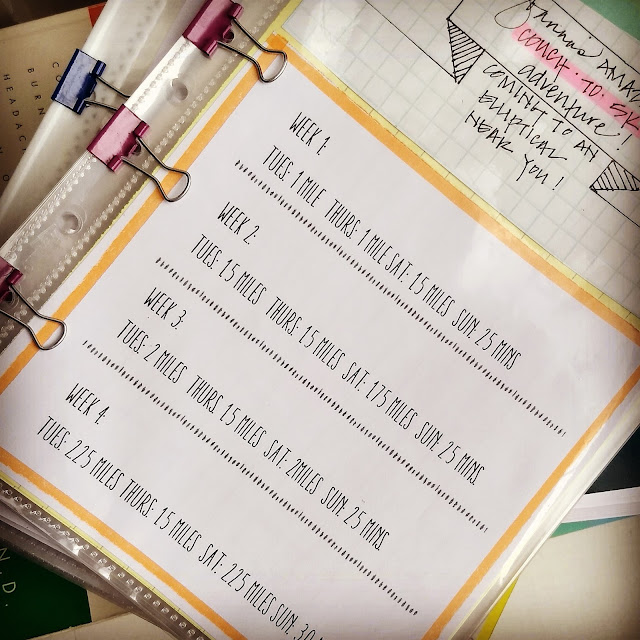 AMAZ
COUCH · TO · 5K
adventure!
COMING TO AN
ELLIPTICAL
NEAR YOU!
WEEK 1:
TUES: 1 MILE THURS: 1 MILE SAT: 15 MILES SUN: 25 MINS
WEEK 2:
TUES: 15 MILES THURS: 15 MILES SAT: 175 MILES SUN: 25 MINS
WEEK 3:
TUES: 2 MILES THURS: 15 MILES SAT: 2MILES SUN: 25 MINS
WEEK 4:
TUES: 225 MILES THURS: 15 MILES SAT: 225 MILES SUN: 30
BURN
HEADAC